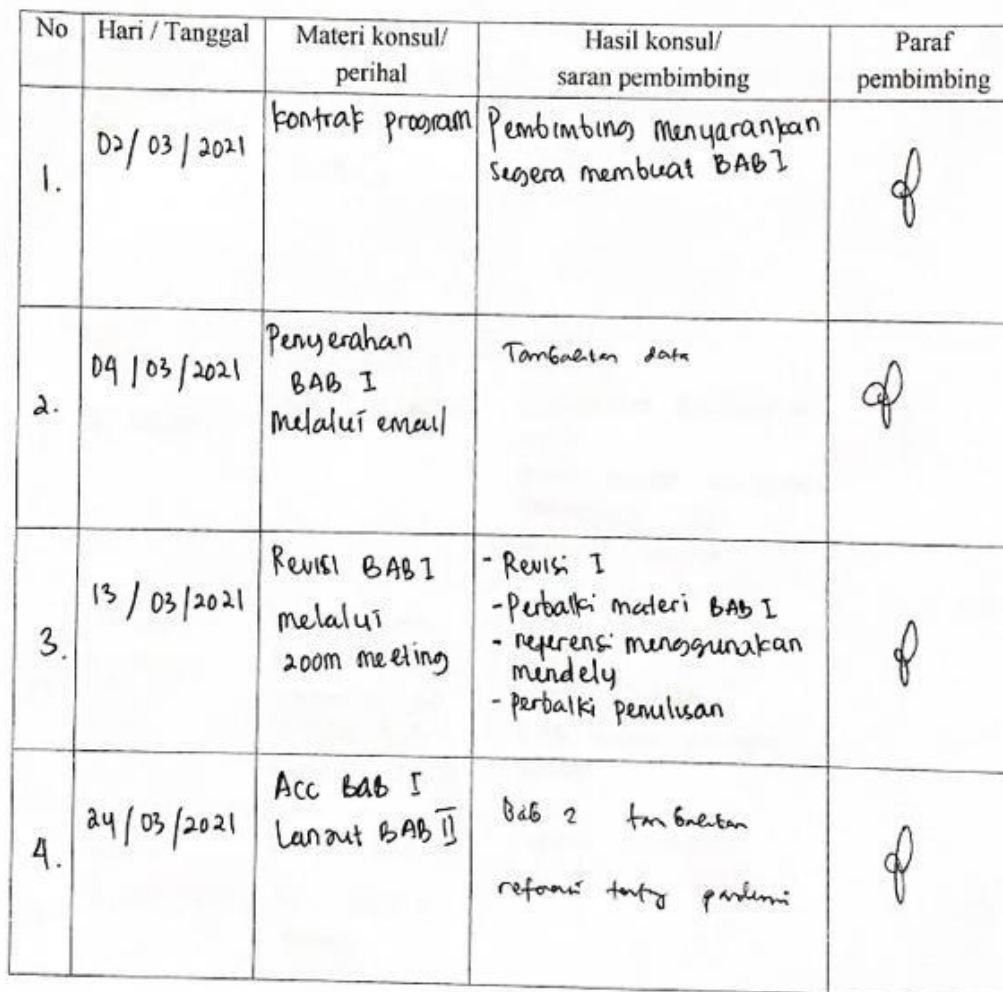 No Hari / Tanggal Materi konsul/ perihal Hasil konsul/ saran pembimbing Paraf pembimbing
1. 02/03/2021
kontrak program
Pembimbing menyarankan
segera membuat BAB I
2. 04/03/2021
Penyerahan
BAB I
Melalui email
Tambahkan data
3. 13/03/2021
Revisi BAB I
melalui
zoom meeting
- Revisi I
- Perbaiki materi BAB I
- referensi menggunakan
mendely
- perbaiki penulisan
4. 24/03/2021
Acc BAB I
Lanjut BAB II
Bab 2 tambahkan
referensi tentang